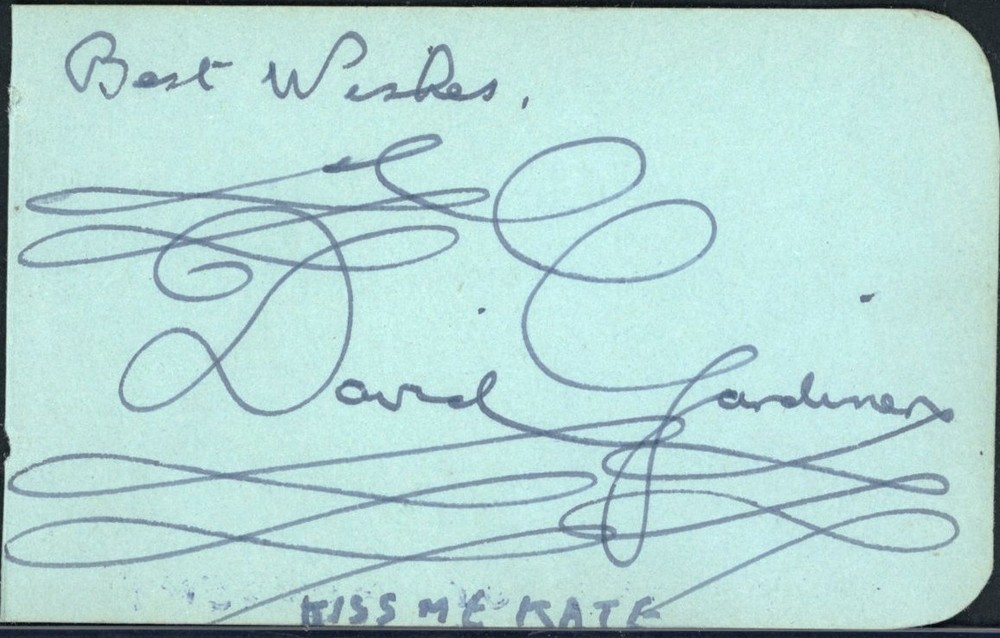 Best Wishes,
David Gardiner
KISS ME KATE